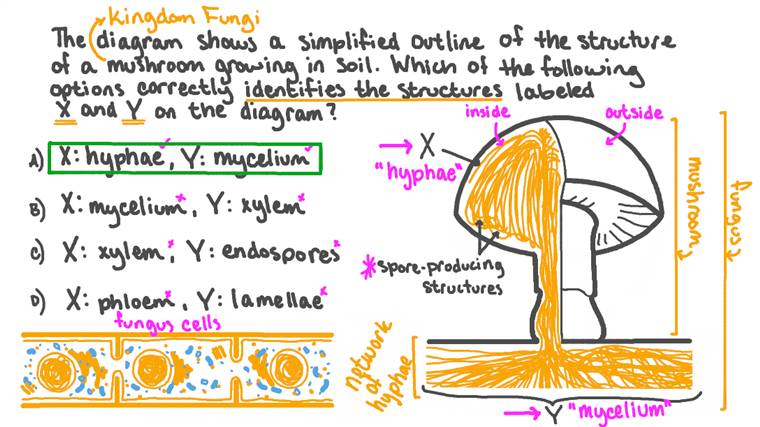 Kingdom Fungi
The diagram shows a simplified outline of the structure
of a mushroom growing in soil. Which of the following
options correctly identifies the structures labeled
X and Y on the diagram?
A) X: hyphae, Y: mycelium
B) X: mycelium, Y: xylem
C) X: xylem, Y: endospores
D) X: phloem, Y: lamellae
fungus cells
inside
outside
X
"hyphae"
*spore-producing
structures
mushroom
fungus
network
of
hyphae
Y "mycelium"